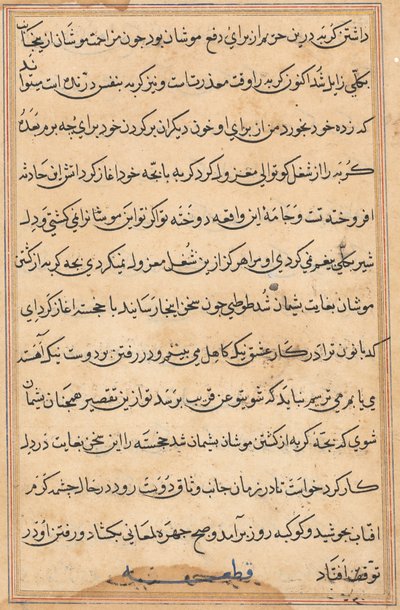 داشتن گربه درین حریم از برای دفع موشان بود چون مزاحمت موشان از ینجا
بکلی زایل شد اکنون گربه را وقت معذرتست و نیز گربه بنفس درنده است
که زده خود نخورد من از برای او خون دیگران بر گردن خود برای چه برم بعده
گربه را از شغل کوتوالی معزول کرد گربه با بچه خود اغاز کرد اتش این حادثه
افروخته تست و جامه این واقعه دوخته تو اگر تو این موشانرا نمی کشتی و دل
شیر بکلی بیغم نمی کردی او مرا هرگز ازین شغل معزول نمیکردی بچه گربه از کشتن
موشان بغایت پشیمان شد طوطی چون سخن اینجا رسانید با خجسته اغاز کرد ای
کدبانو ترا در کار عشق نیک کاهل می بینم و در رفتن بر دوست نیک اهسته
می یابم می ترسم نباید که شوی تو عن قریب برسد تو ازین تقصیر همچنان پشیمان
شوی که بچه گربه از کشتن موشان پشیمان شد خجسته را این سخن بغایت در دل
کار کرد خواست تا در زمان جانب وثاق دوست رود در حال چشمه گرم
افتاب بجوشید و کوکبه روز برآمد و صبح چهره لمعانی بکشاد و رفتن او در
توقف افتاد قطعه